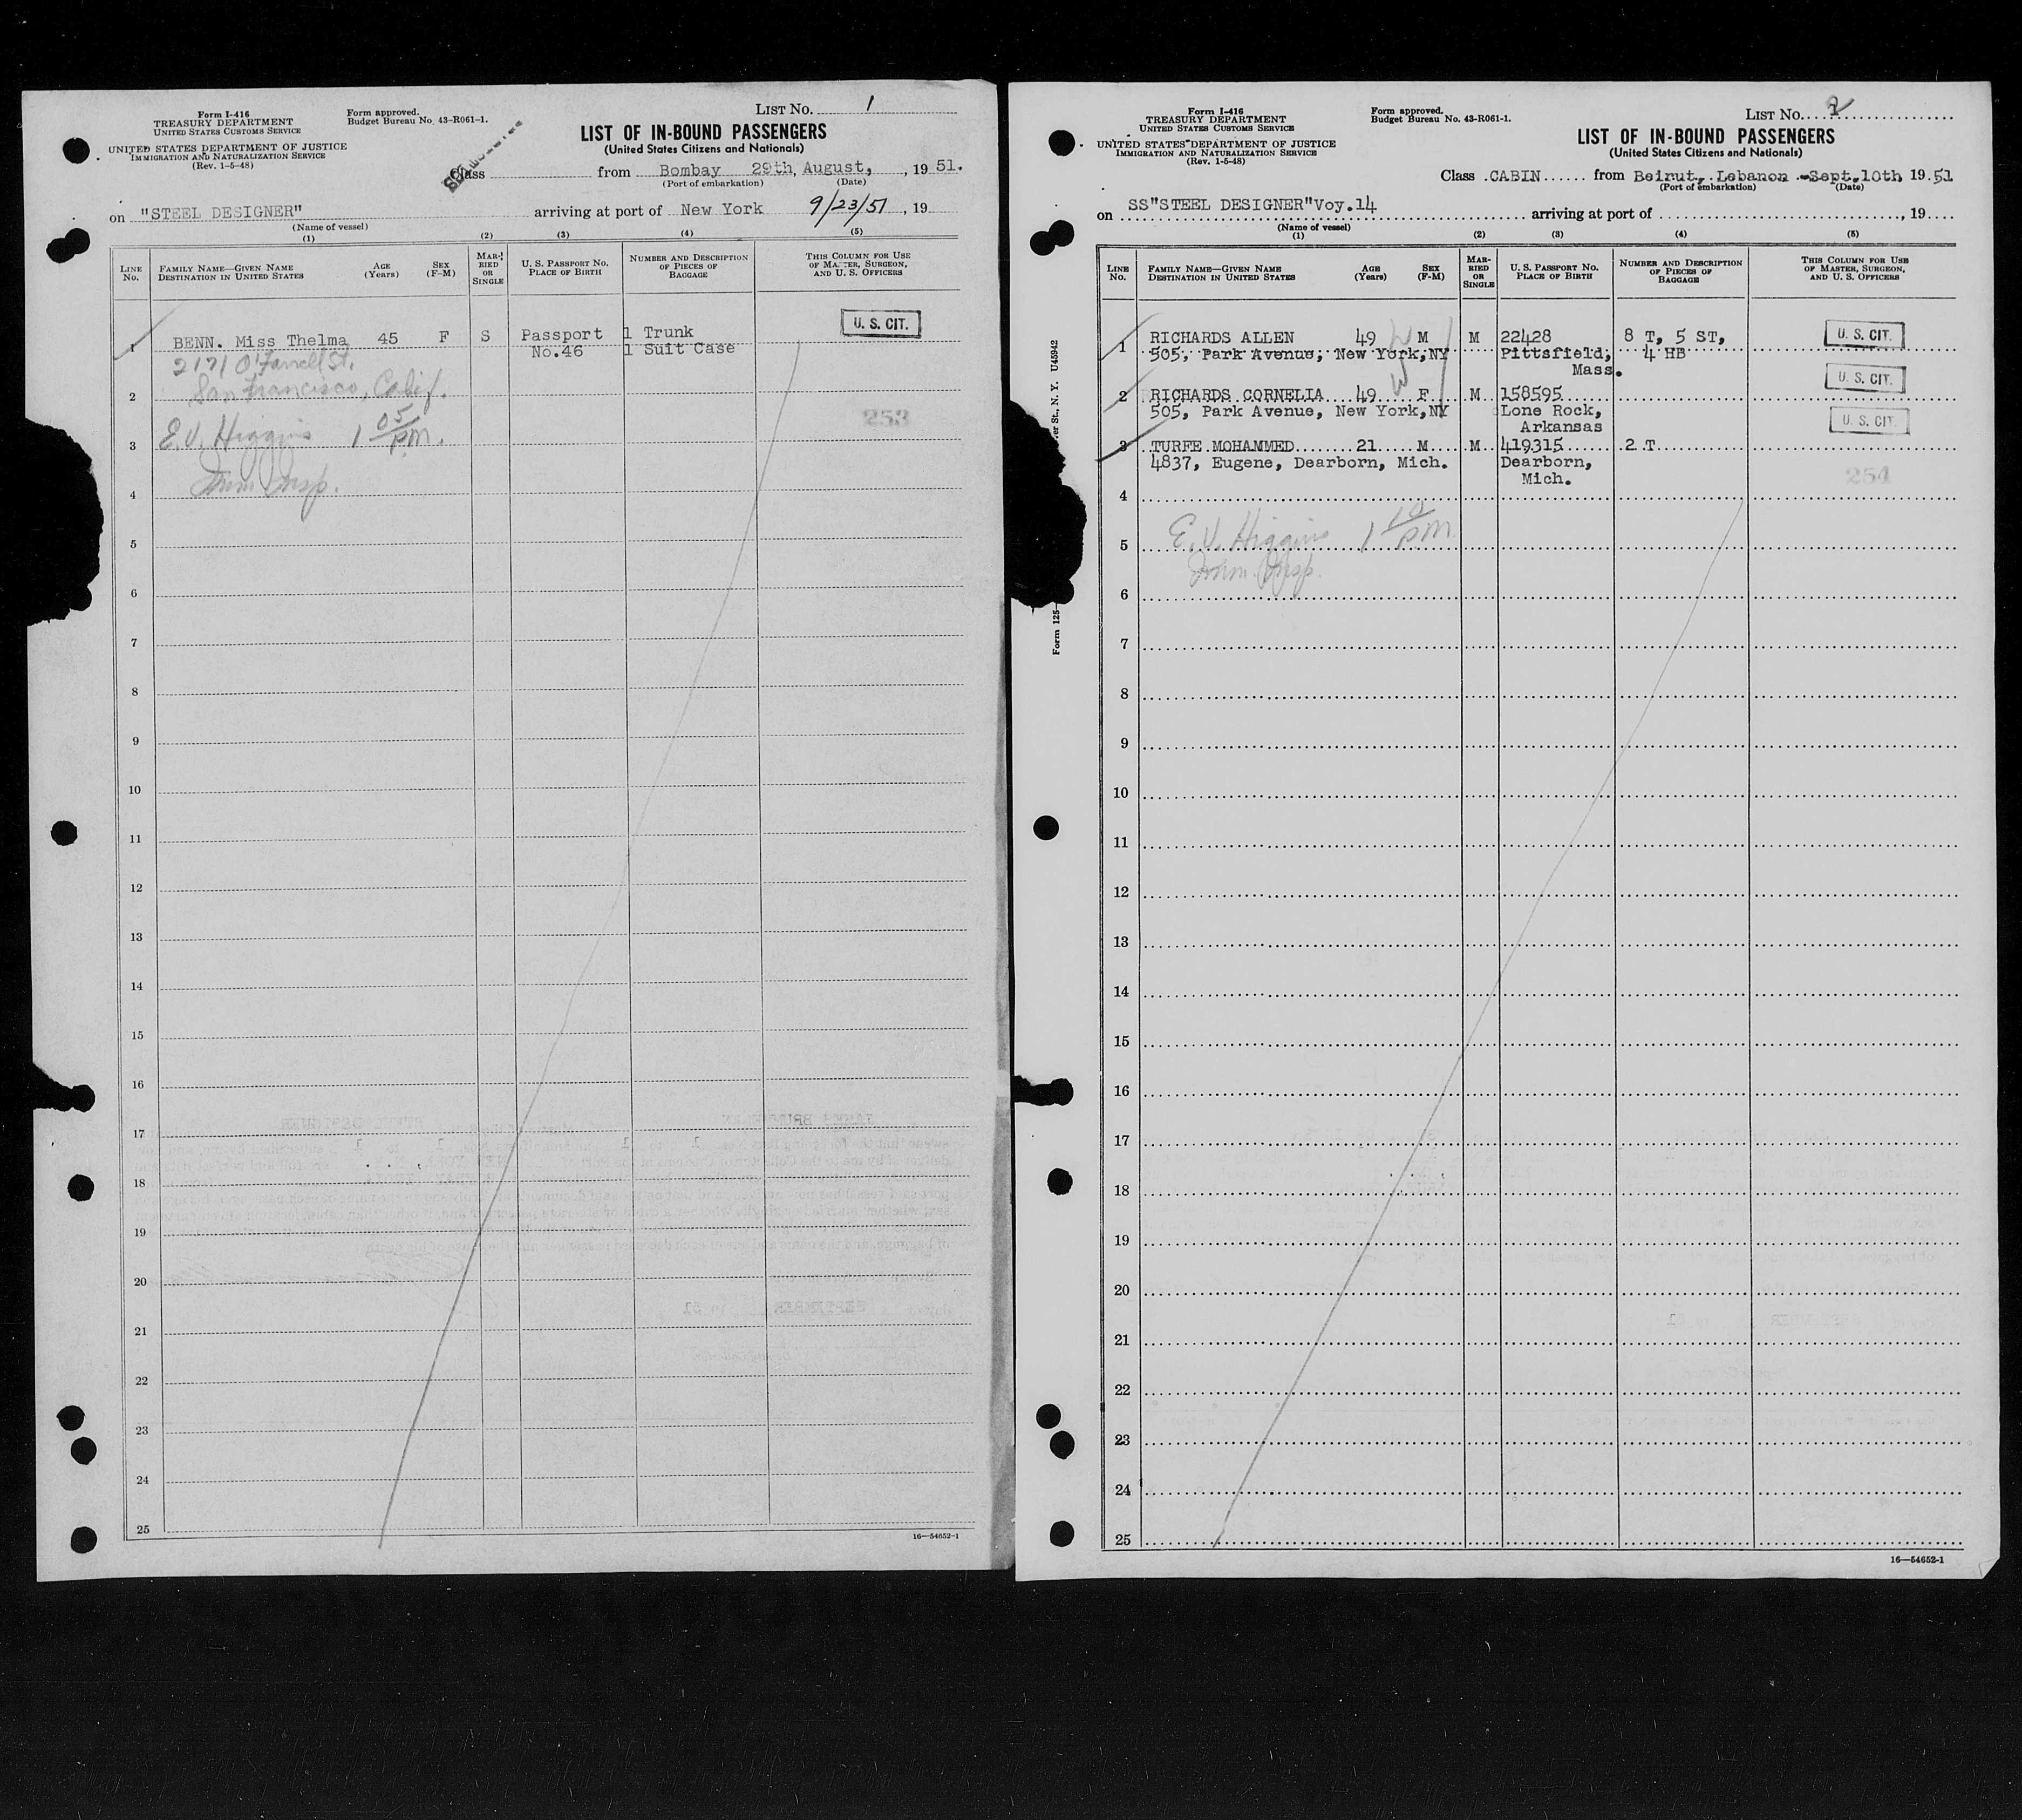 Form I-416
TREASURY DEPARTMENT
UNITED STATES CUSTOMS SERVICE
UNITED STATES DEPARTMENT OF JUSTICE
IMMIGRATION AND NATURALIZATION SERVICE
(Rev. 1-5-48)
Form approved.
Budget Bureau No. 43-R061-1.
LIST No. 1
LIST OF IN-BOUND PASSENGERS
(United States Citizens and Nationals)
Class from Bombay 29th, August, , 19 51.
(Port of embarkation) (Date)
on "STEEL DESIGNER" arriving at port of New York 9/23/51 , 19
(Name of vessel)
(1) (2) (3) (4) (5)
LINE No. FAMILY NAME—GIVEN NAME DESTINATION IN UNITED STATES AGE (Years) SEX (F-M) MARRIED OR SINGLE U. S. PASSPORT NO. PLACE OF BIRTH NUMBER AND DESCRIPTION OF PIECES OF BAGGAGE THIS COLUMN FOR USE OF MASTER, SURGEON, AND U. S. OFFICERS
U. S. CIT.
1 BENN. Miss Thelma 45 F S Passport 1 Trunk
No.46 1 Suit Case
2171 O'Farrell St.
2 San Francisco, Calif.
253
3 E.V. Higgins 1 05 PM.
4 Imm. Insp.
5
6
7
8
9
10
11
12
13
14
15
16
17
18
19
20
21
22
23
24
25
16—54652-1
Form I-416
TREASURY DEPARTMENT
UNITED STATES CUSTOMS SERVICE
UNITED STATES DEPARTMENT OF JUSTICE
IMMIGRATION AND NATURALIZATION SERVICE
(Rev. 1-5-48)
Form approved.
Budget Bureau No. 43-R061-1.
LIST No. 2
LIST OF IN-BOUND PASSENGERS
(United States Citizens and Nationals)
Class CABIN from Beirut, Lebanon Sept.10th, 19.51
(Port of embarkation) (Date)
on SS"STEEL DESIGNER"Voy.14 arriving at port of , 19
(Name of vessel)
(1) (2) (3) (4) (5)
LINE No. FAMILY NAME—GIVEN NAME DESTINATION IN UNITED STATES AGE (Years) SEX (F-M) MARRIED OR SINGLE U. S. PASSPORT NO. PLACE OF BIRTH NUMBER AND DESCRIPTION OF PIECES OF BAGGAGE THIS COLUMN FOR USE OF MASTER, SURGEON, AND U. S. OFFICERS
1 RICHARDS ALLEN 49 W M M 22428 8 T, 5 ST, U. S. CIT.
505, Park Avenue, New York,NY Pittsfield, 4 HB
Mass.
U. S. CIT.
2 RICHARDS CORNELIA 49 W F M 158595
505, Park Avenue, New York,NY Lone Rock,
Arkansas U. S. CIT.
3 TURFE MOHAMMED 21 M M 419315 2 T
4837, Eugene, Dearborn, Mich. Dearborn,
Mich. 254
4
5 E. V. Higgins 1 10 PM
Imm. Insp.
6
7
8
9
10
11
12
13
14
15
16
17
18
19
20
21
22
23
24
25
16—54652-1
U45942
Form 125-